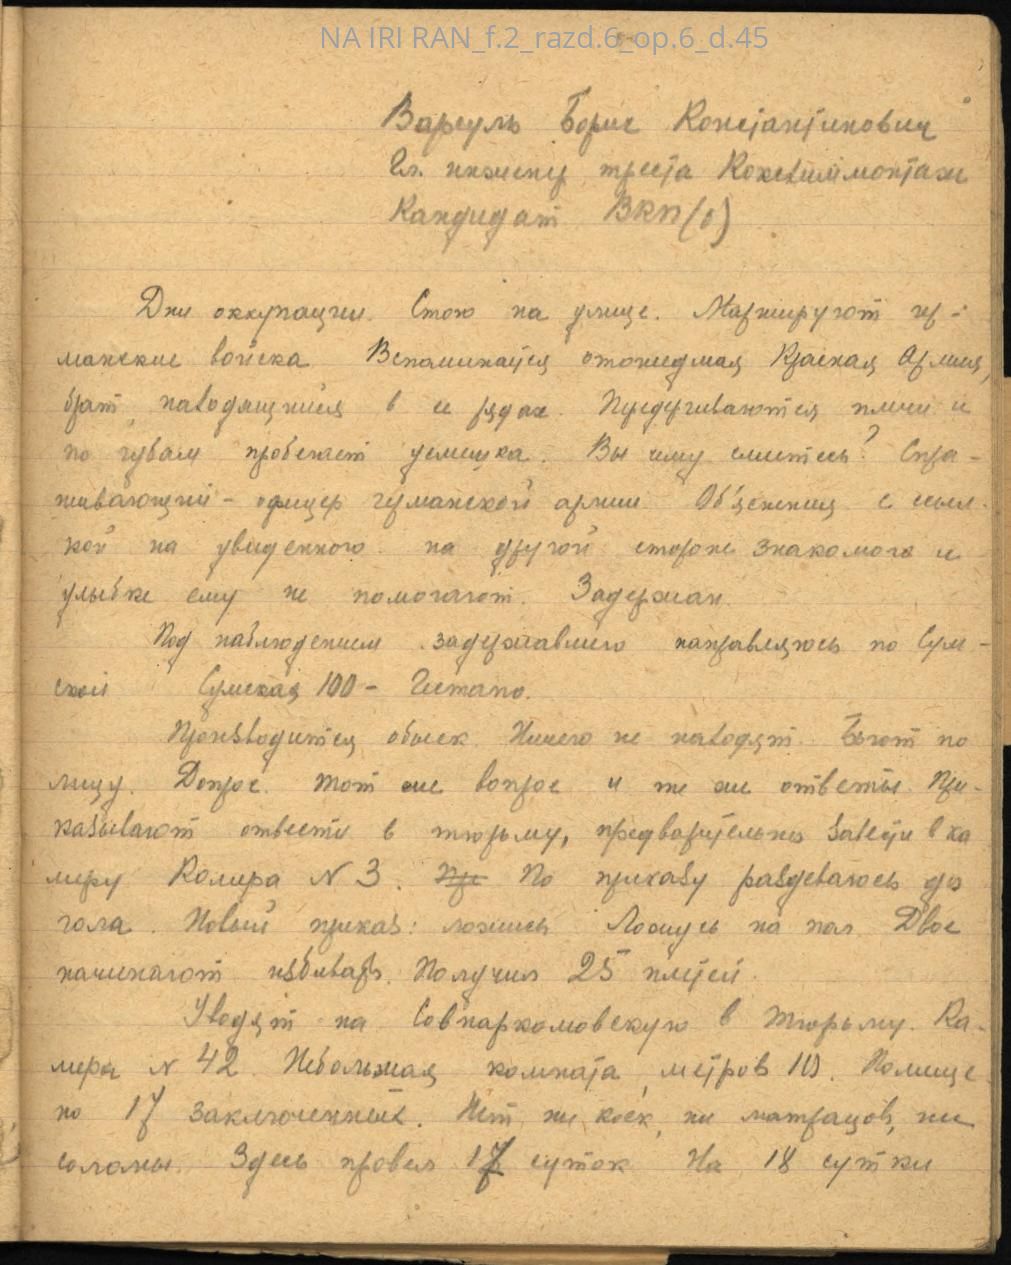 NA IRI RAN_f.2_razd.6_op.6_d.45
Варгуль Борис Константинович
Гл. инженер треста Коксохиммонтаж
Кандидат ВКП(б)
Дни оккупации. Стою на улице. Маршируют гер-
манские войска Вспоминается отошедшая Красная Армия,
брат, находящийся в ее рядах. Передергиваются плечи и
по губам пробегает усмешка. Вы чему смеетесь? Спра-
шивающий - офицер германской армии Объяснения с ссыл-
кой на увиденного на другой стороне знакомого и
улыбке ему не помогают. Задержан.
Под наблюдением задержавшего направляюсь по Сум-
ской Сумская 100 - Гестапо.
Производится обыск. Ничего не находят. Бьют по
лицу. Допрос. Тот же вопрос и те же ответы. При-
казывают отвести в тюрьму, предварительно завести в ка
меру Камера N 3. По приказу раздеваюсь до
гола. Новый приказ: ложись Ложусь на пол Двое
начинают избивать. Получил 25 плетей.
Уводят на Совнаркомовскую в тюрьму. Ка-
мера N 42. Небольшая комната, метров 10. Помеще
но 17 заключенных. Нет ни коек, ни матрацов, ни
соломы. Здесь провел 17 суток На 18 сутки